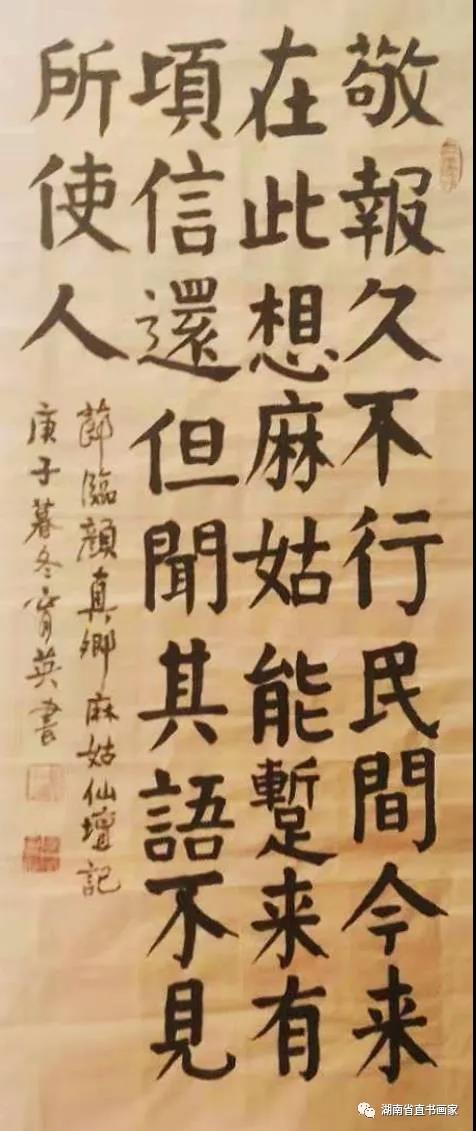 敬報久不行民間今来
在此想麻姑能蹔来有
項信還但聞其語不見
所使人
節臨顏真卿麻姑仙壇記
庚子暮冬英書
湖南省直书画家